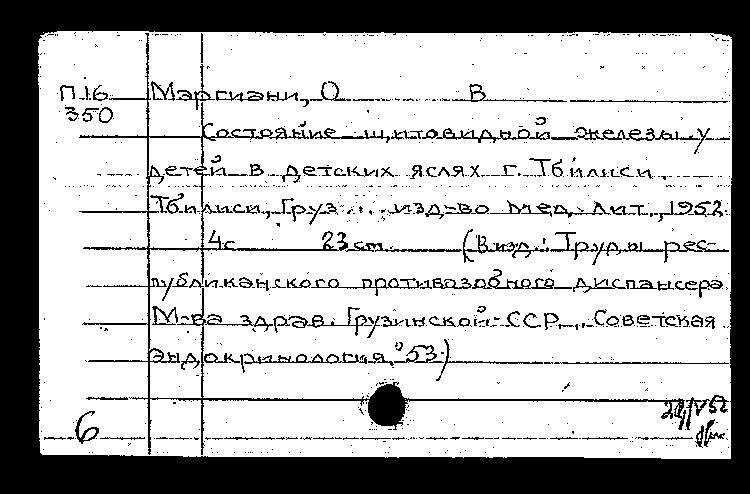 П16 Маргиани, О В
350
Состояние щитовидной железы у
детей в детских яслях г. Тбилиси.
Тбилиси, Груз. изд-во мед. лит., 1952
4с 23 cm (В изд.: Труды рес-
публиканского противозобного диспансера
М-ва здрав. Грузинской ССР, „Советская
эндокринология, "53)
6